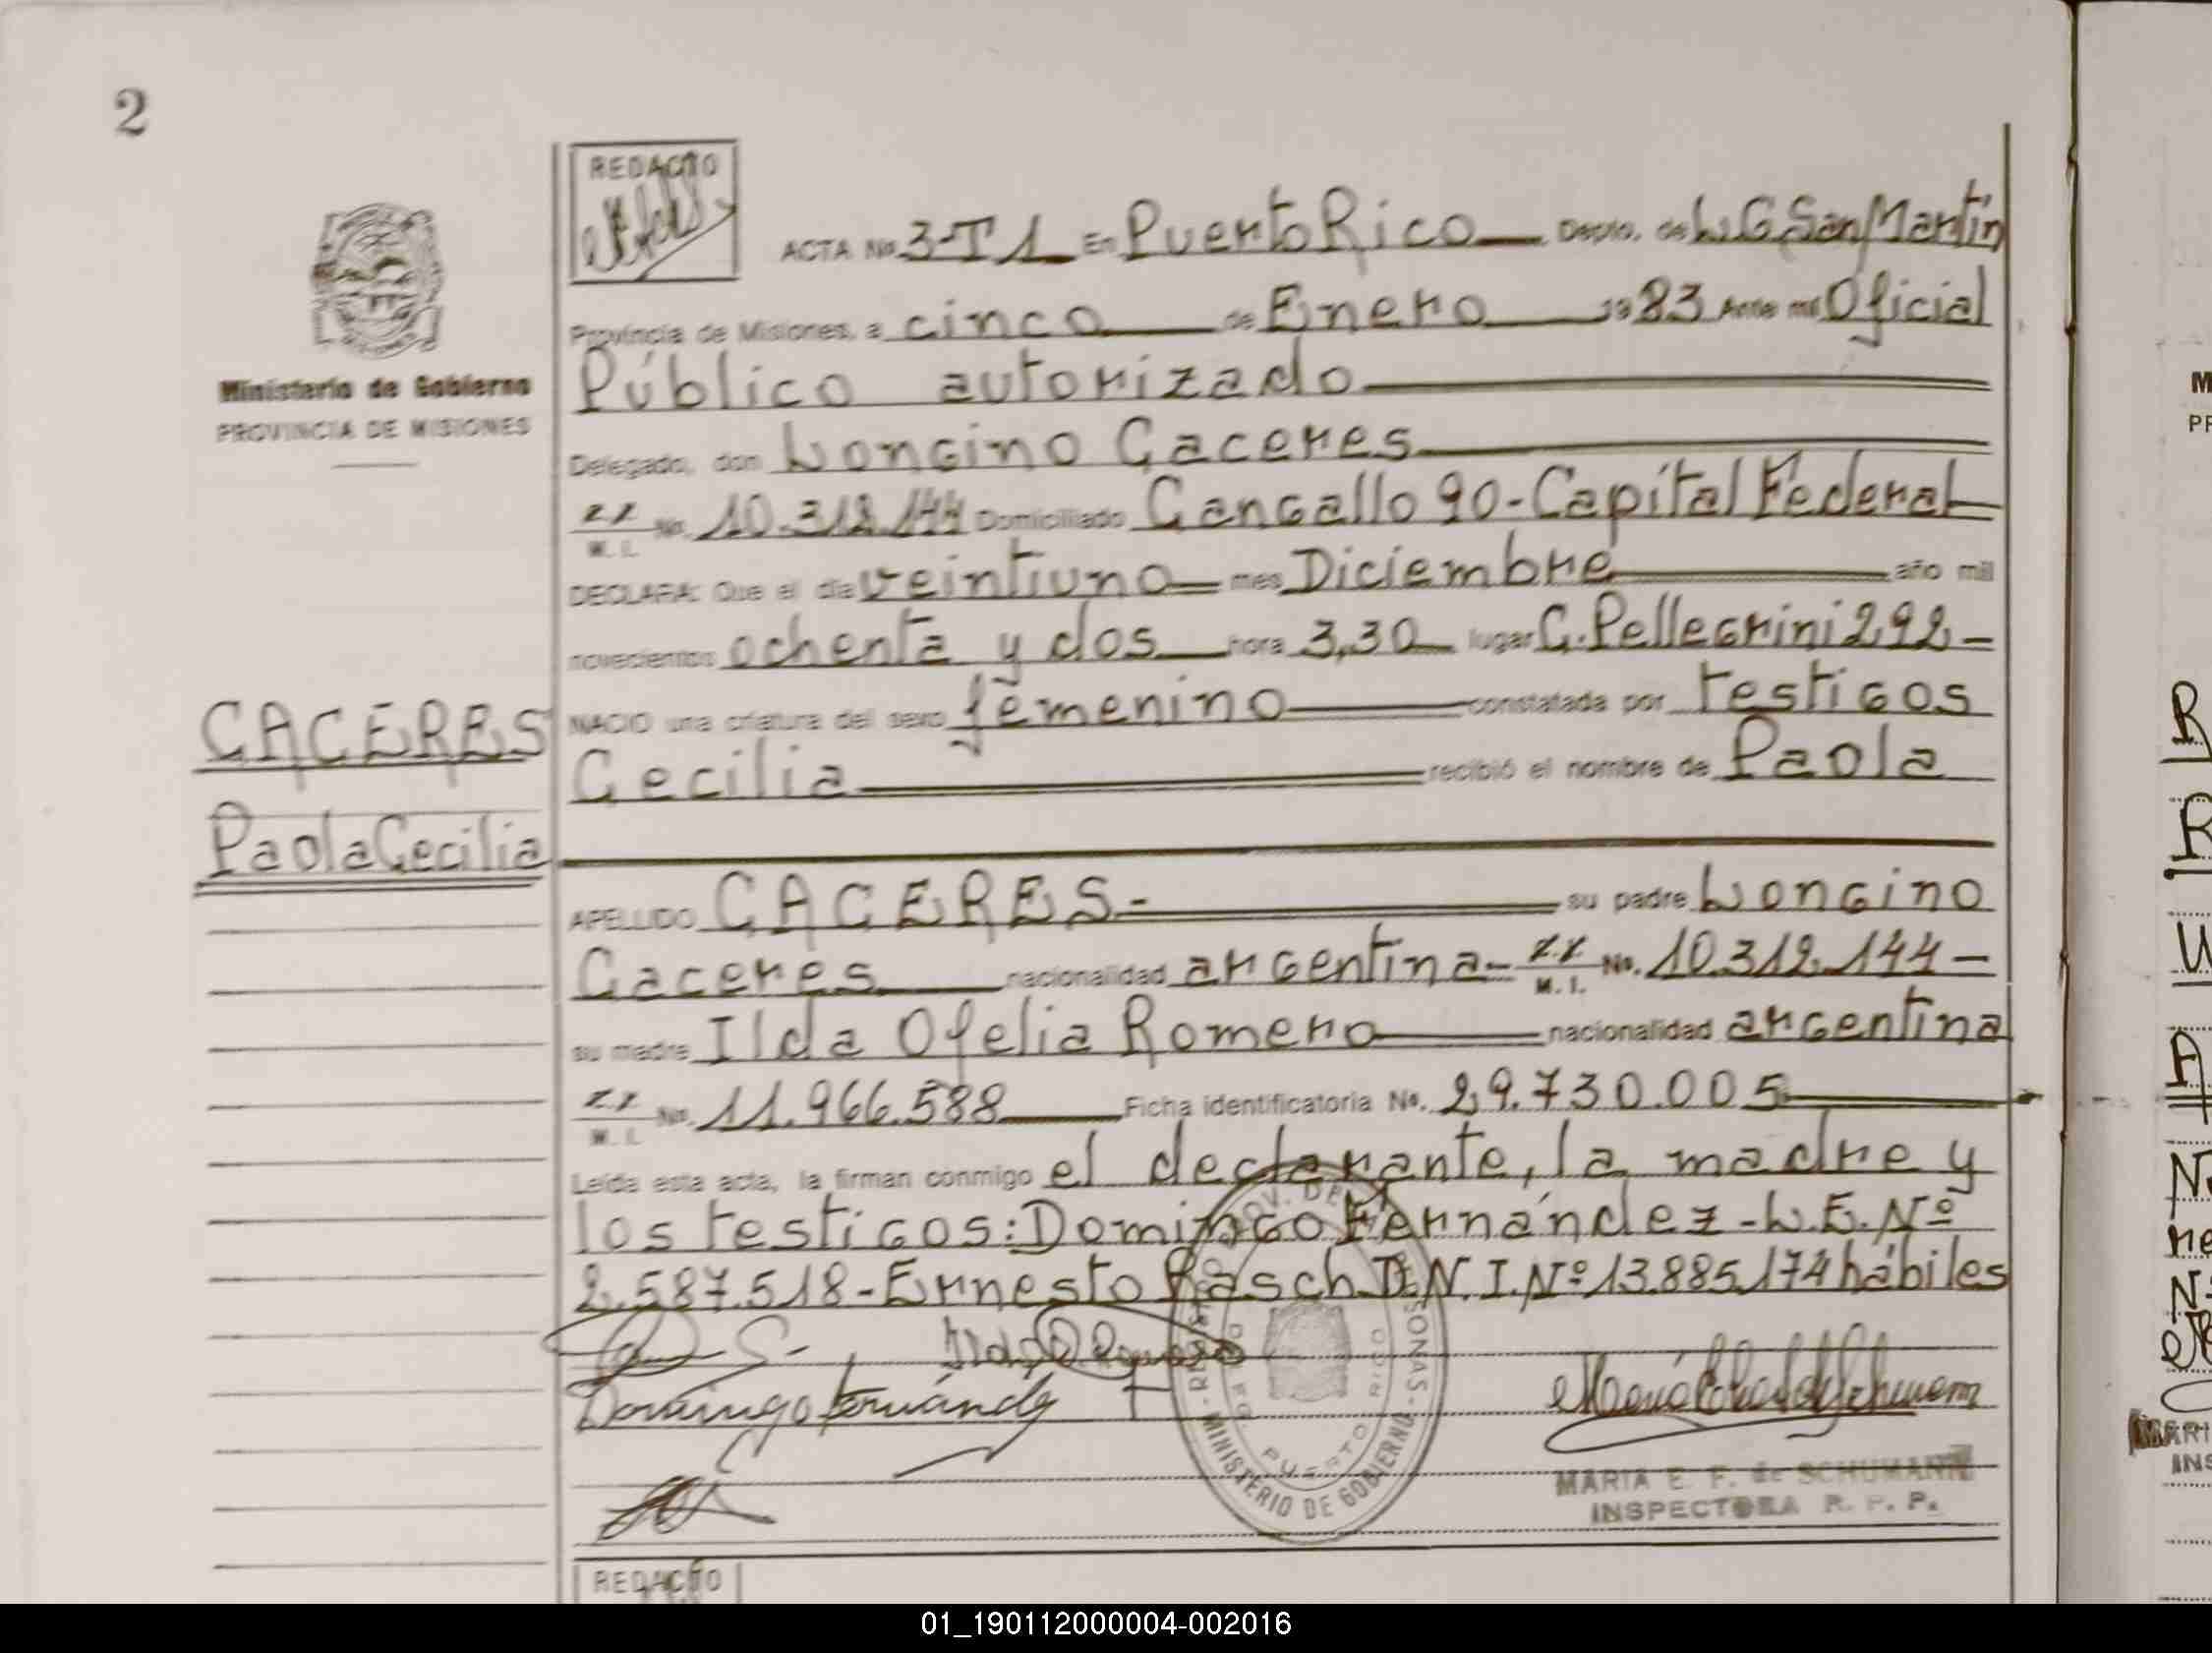 2
REDACTO
ACTA No. 3-T1 En Puerto Rico Depto. de L.G. San Martín
Provincia de Misiones, a cinco de Enero 1983 Ante mi Oficial
Ministerio de Gobierno
PROVINCIA DE MISIONES
Público autorizado
Delegado, don Longino Caceres
M. I. No. 10.312.144 Domiciliado Cangallo 90-Capítal Federal
DECLARA: Que el día veintiuno mes Diciembre año mil
novecientos ochenta y dos hora 3,30 lugar C. Pellegrini 292-
NACIO una criatura del sexo femenino constatada por testigos
CACERES
Cecilia recibió el nombre de Paola
Paola Cecilia
APELLIDO CACERES- su padre Longino
Caceres nacionalidad argentina- M. I. No. 10.312.144-
su madre Ilda Ofelia Romero nacionalidad argentina
M. I. No. 11.966.588 Ficha identificatoria No. 29.730.005
Leída esta acta, la firman conmigo el declarante, la madre y
los testigos: Domingo Fernández-L.E.Nº
2.587.518-Ernesto Rasch D.N.I.Nº13.885.174 hábiles
Domingo Fernández
MINISTERIO DE GOBIERNO
PUERTO RICO
MARIA E. F. de SCHUMANN
INSPECTORA R. P. P.
REDACTO
01_190112000004-002016